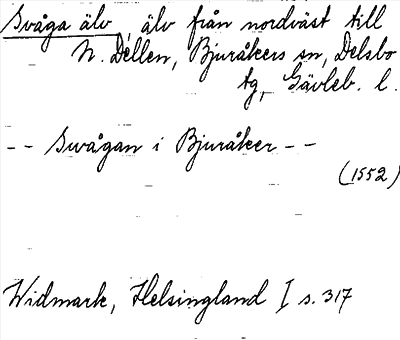 Svåga älv, älv från nordväst till
N. Dellen, Bjuråkers sn, Delsbo
tg, Gävleb. l.
-- Swågan i Bjuråker --
(1552)
Widmark, Helsingland I s. 317